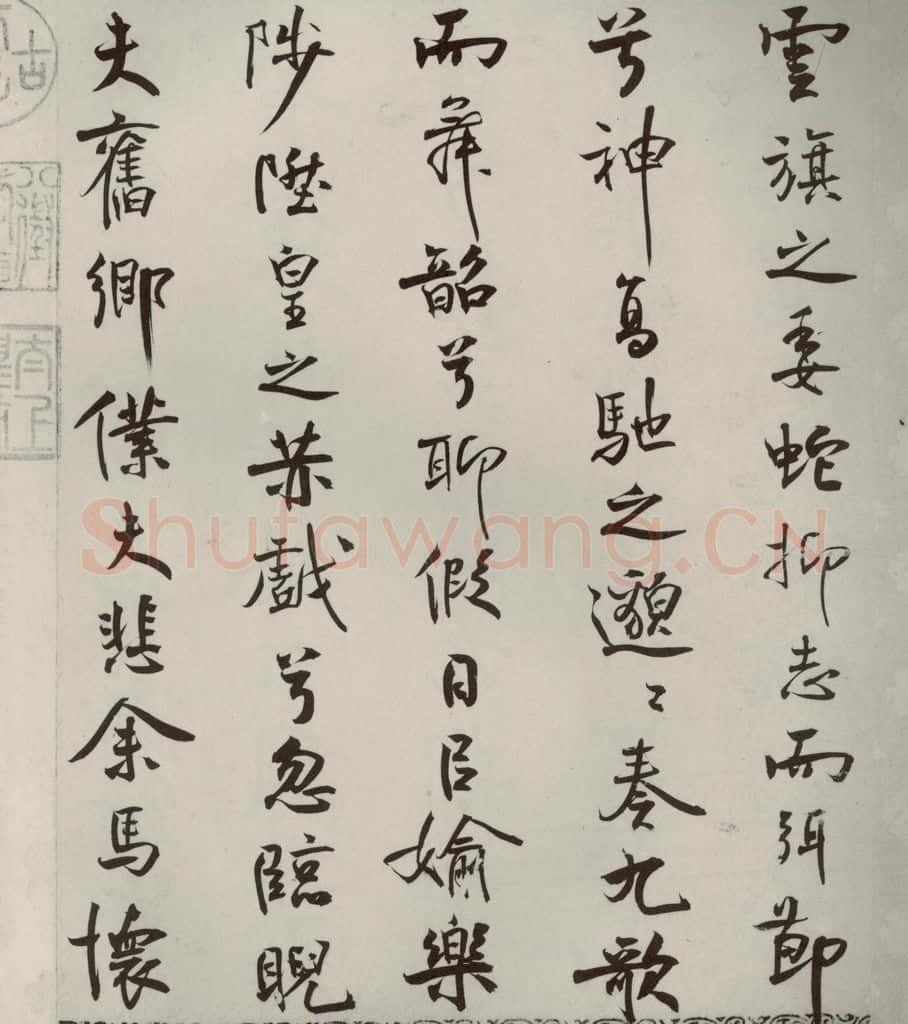 雲旗之委蛇抑志而弭節
兮神高馳之邈〻奏九歌
而舞韶兮聊假日㠯媮樂
陟陞皇之赫戲兮忽臨睨
夫舊鄉僕夫悲余馬懷
Shufawang.CN